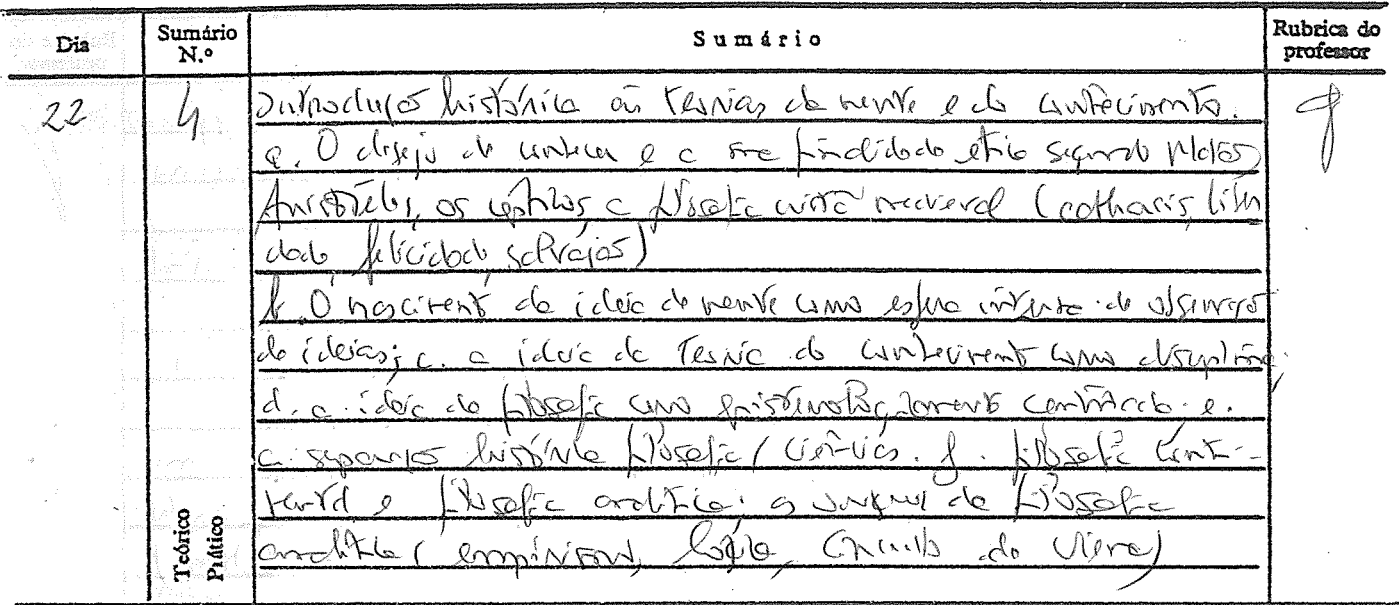 Dia Sumário N.º Sumário Rubrica do professor
22 4 Introdução histórica às teorias da mente e do conhecimento.
a. O desejo de conhecer e a sua finalidade ética segundo Platão,
Aristóteles, os cépticos, a filosofia cristã medieval (catharsis, liber
dade, felicidade, salvação)
b. O nascimento da ideia de mente como esfera interna de observação
de ideias; c. a ideia de Teoria do conhecimento como disciplina;
d. a ideia de filosofia como epistemologicamente centrada. e.
a separação histórica filosofia / ciências. f. filosofia conti-
nental e filosofia analítica; a origem da filosofia
analítica (empirismo, lógica, Círculo de Viena)
Teórico
Prático